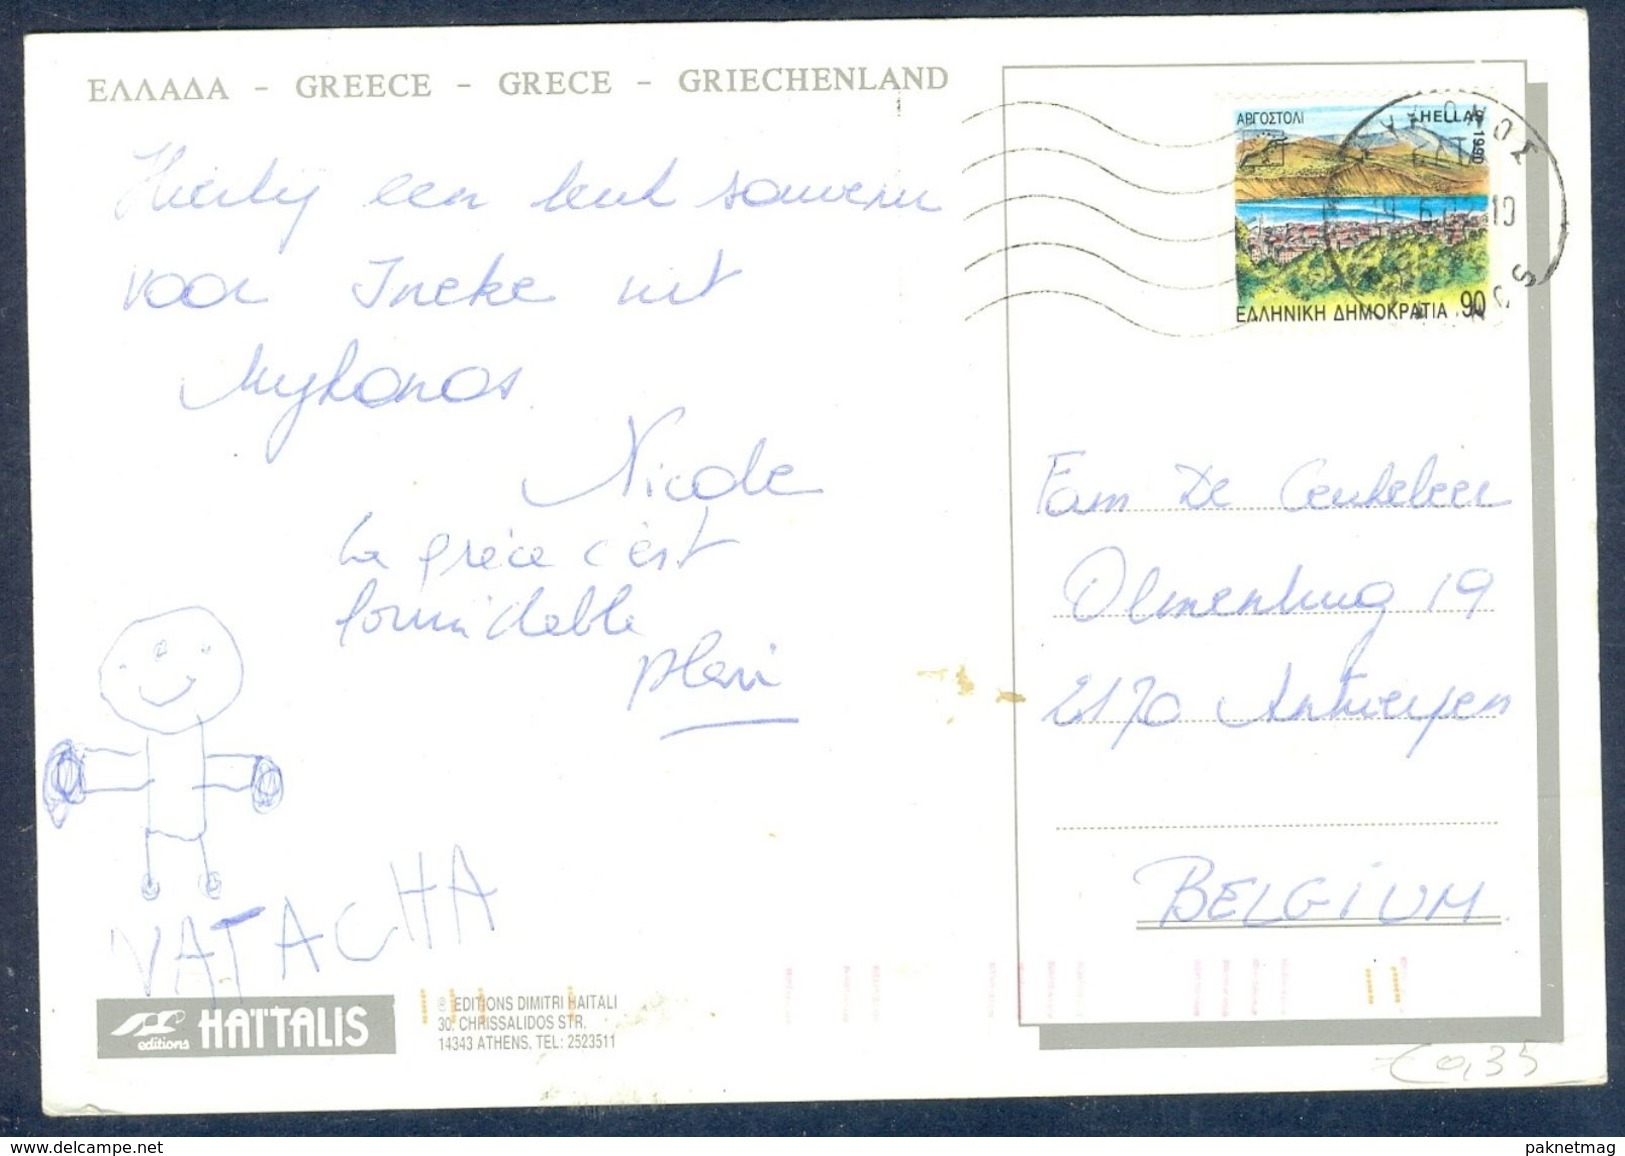 ΕΛΛΑΔΑ - GREECE - GRECE - GRIECHENLAND
Hierbij een leuk souvenir
voor Ineke uit
Mykonos
Nicole
La grèce c'est
formidable
NATACHA
HAÏTALIS
editions
© EDITIONS DIMITRI HAITALI
30. CHRISSALIDOS STR.
14343 ATHENS, TEL: 2523511
ΑΡΓΟΣΤΟΛΙ
HELLAS 1990
ΕΛΛΗΝΙΚΗ ΔΗΜΟΚΡΑΤΙΑ 90
Fam De Ceukeleer
Olmenburg 19
2170 Antwerpen
BELGIUM
€ 0,35
www.delcampe.net
paknetmag